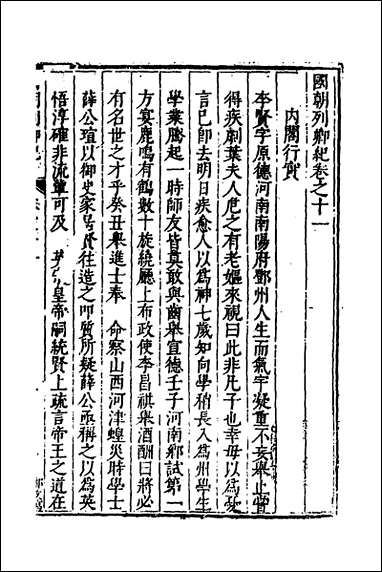 國朝列卿紀卷之十一
內閣行實
李賢字原德河南南陽府鄧州人生而氣宇凝重不妄舉止嘗
得疾劇葉夫人危之有老嫗來視曰此非凡子也幸毋以為
言已即去明日疾愈人以為神七歲知向學稍長入為州學生
學業騰起一時師友皆莫敢與齒舉宣德壬子河南鄉試第一
方宴鹿鳴有鶴數十旋繞廳上布政使李昌祺舉酒酬曰將必
有名世之才乎癸丑舉進士奉 命察山西河津蝗災時學士
薛公瑄以御史家居賢往造之叩質所疑薛公亟稱之以為英
悟淳確非流輩可及 皇帝嗣統賢上疏言帝王之道在